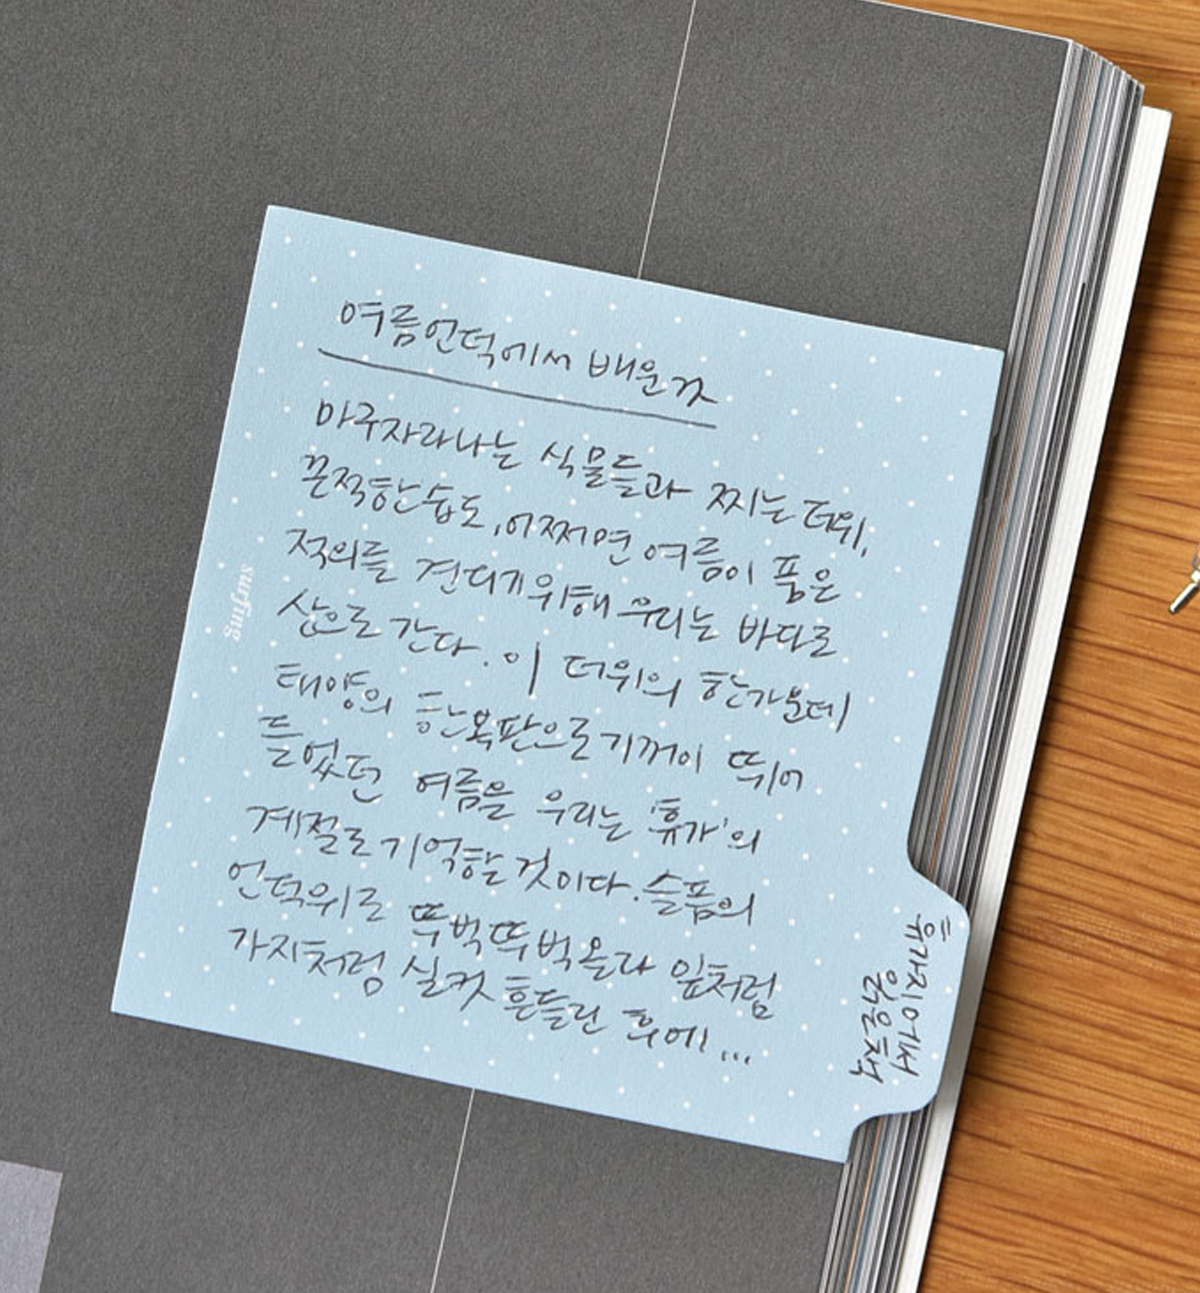 여름언덕에서 배운 것
마구자라나는 식물들과 찌는 더위,
끈적한 습도, 어쩌면 여름이 품은
적의를 견디기위해 우리는 바다로
산으로 간다. 이 더위의 한가운데
태양의 한복판으로 기꺼이 뛰어
들었던 여름을 우리는 '휴가'의
계절로 기억할 것이다. 슬픔의
언덕위로 뚜벅뚜벅 올라 잎처럼
가지처럼 실컷 흔들린 후에...
휴가지에서
읽은 책
surfing